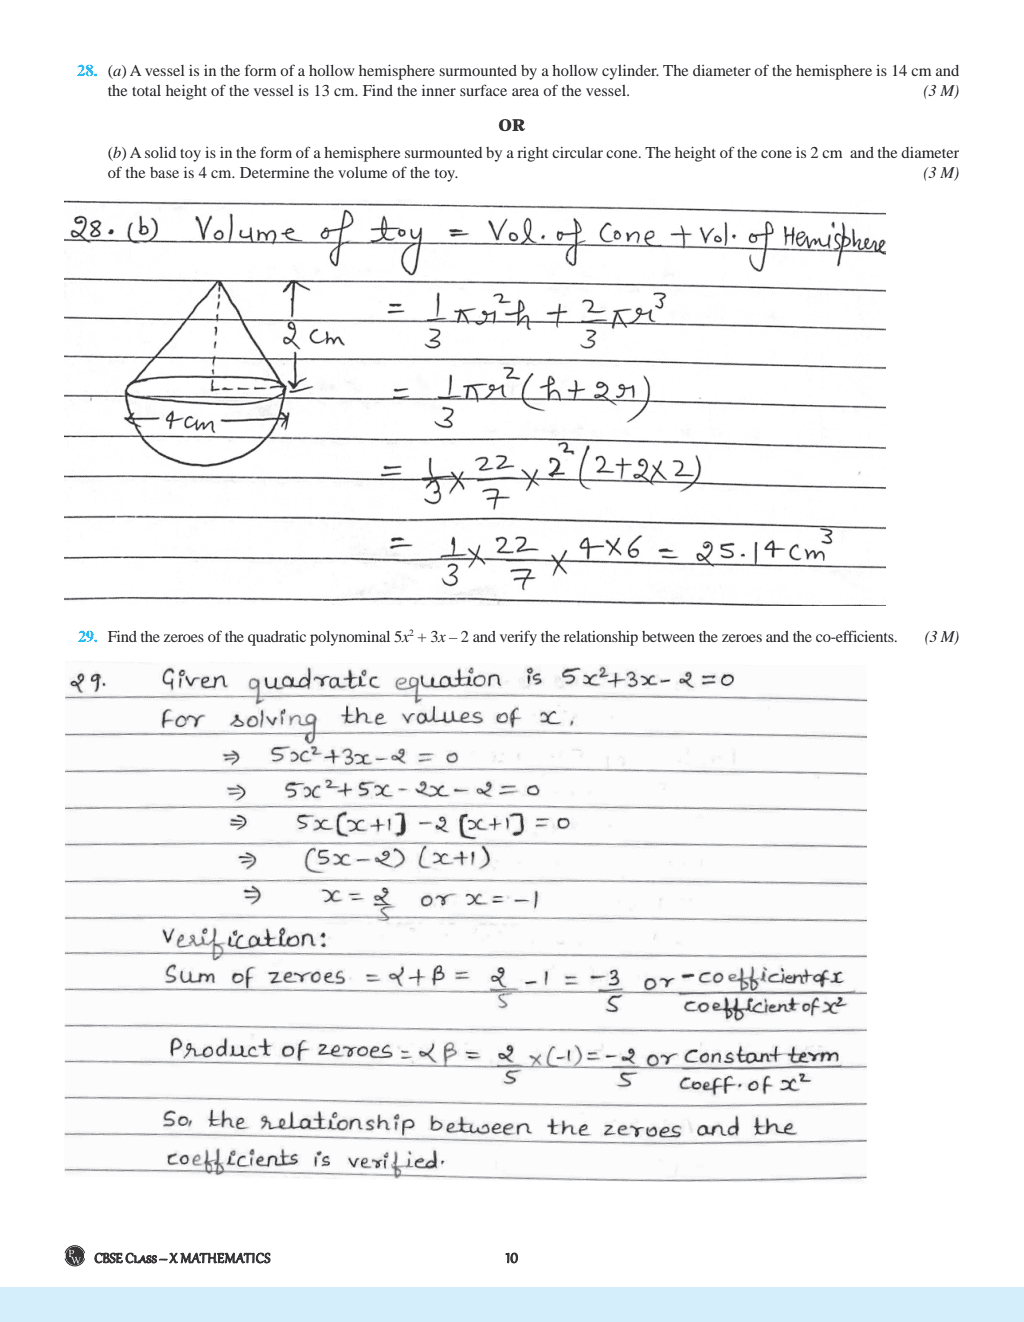 28. (a) A vessel is in the form of a hollow hemisphere surmounted by a hollow cylinder. The diameter of the hemisphere is 14 cm and
the total height of the vessel is 13 cm. Find the inner surface area of the vessel. (3 M)
OR
(b) A solid toy is in the form of a hemisphere surmounted by a right circular cone. The height of the cone is 2 cm and the diameter
of the base is 4 cm. Determine the volume of the toy. (3 M)
28. (b) Volume of toy = Vol. of Cone + Vol. of Hemisphere
= 1/3 πr²h + 2/3 πr³
2 cm
= 1/3 πr² (h + 2r)
4 cm
= 1/3 × 22/7 × 2² (2+2×2)
= 1/3 × 22/7 × 4×6 = 25.14 cm³
29. Find the zeroes of the quadratic polynominal 5x² + 3x – 2 and verify the relationship between the zeroes and the co-efficients. (3 M)
29. Given quadratic equation is 5x²+3x-2=0
For solving the values of x,
⇒ 5x²+3x-2 = 0
⇒ 5x²+5x-2x-2=0
⇒ 5x[x+1] -2 [x+1] = 0
⇒ (5x-2) (x+1)
⇒ x = 2/5 or x = -1
Verification:
Sum of zeroes = α+β = 2/5 -1 = -3/5 or -coefficient of x/coefficient of x²
Product of zeroes = αβ = 2/5 ×(-1) = -2/5 or constant term/coeff. of x²
So, the relationship between the zeroes and the
coefficients is verified.
PW CBSE CLASS – X MATHEMATICS 10